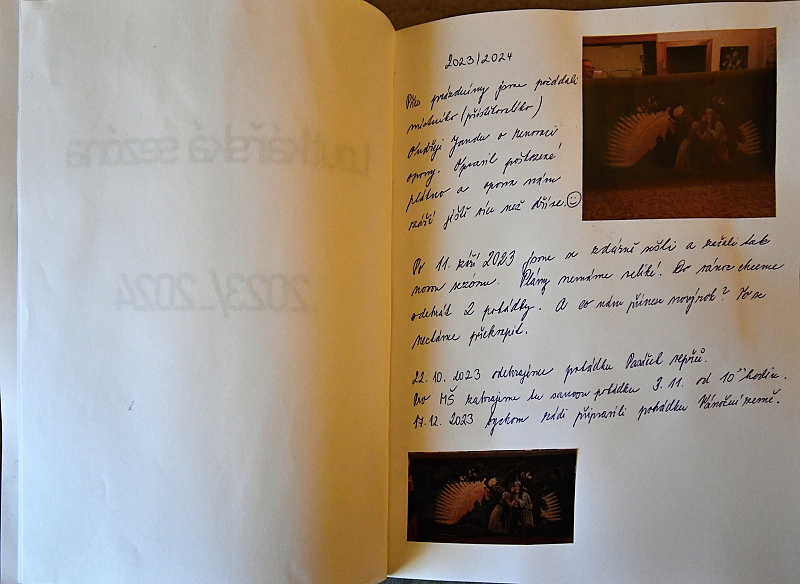 Loutkářská sezóna
2023/2024
2023/2024
Přes prázdniny jsme požádali
místního (přistěhovalého)
Ondřeje Jandu o renovaci
opony. Opravil poškozené
plátno a opona nám
září ještě více než dříve. ☺
Po 11. září 2023 jsme se zdárně sešli a začali tak
novou sezónu. Plány nemáme veliké. Do vánoc chceme
odehrát 2 pohádky. A co nám přinese nový rok? To se
necháme překvapit.
22. 10. 2023 odehrajeme pohádku Pasáček vepřů.
Pro MŠ zahrajeme tu samou pohádku 3. 11. od 10 hodin.
17. 12. 2023 bychom rádi připravili pohádku Vánoční země.